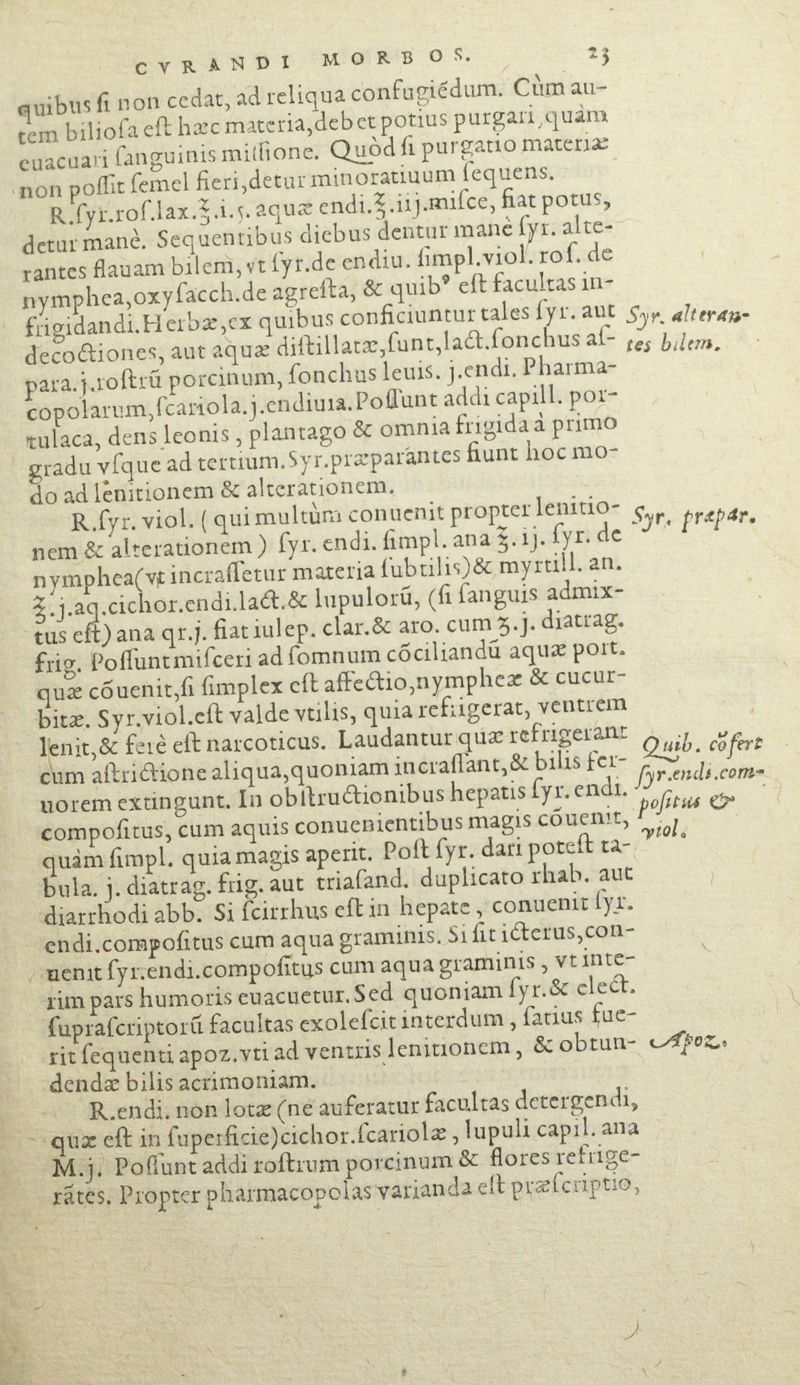 CVRANDI MORBOS. 23
quibus ſi non cedat, ad reliqua confugiēdum. Cùm au-
tem bilioſa eſt hæc materia, debet potius purgari, quàm
euacuari ſanguinis miſſione. Quòd ſi purgatio materiæ
non poſſit ſemel fieri, detur minoratiuum ſequens.
R. ſyr. roſ. lax. ℥. i. ς. aquæ endi. ℥. iij. miſce, fiat potus,
detur manè. Sequentibus diebus dentur manè ſyr. alte-
rantes flauam bilem, vt ſyr. de endiu. ſimpl. viol. roſ. de
nymphea, oxyſacch. de agreſta, & quibꝰ eſt facultas in-
frigidandi. Herbæ, ex quibus conficiuntur tales ſyr. aut
Syr. alteran-
decoctiones, aut aquæ diſtillatæ, ſunt, lact. ſonchus aſ-
tes bilem.
para. j. roſtrū porcinum, ſonchus leuis. j. endi. Pharma-
copolarum, ſcariola. j. endiuia. Poſſunt addi capill. por-
tulaca, dens leonis, plantago & omnia frigida à primo
gradu vſque ad tertium. Syr. præparantes fiunt hoc mo-
do ad lenitionem & alterationem.
R. ſyr. viol. (qui multùm conuenit propter lenitio-
Syr. præpar.
nem & alterationem) ſyr. endi. ſimpl. ana ℥. ij. ſyr. de
nymphea (vt incraſſetur materia ſubtilis) & myrtill. an.
℥. j. aq. cichor. endi. lact. & lupulorū, (ſi ſanguis admix-
tus eſt) ana qr. j. fiat iulep. clar. & aro. cum ʒ. j. diatrag.
frig. Poſſunt miſceri ad ſomnum cōciliandū aquæ port.
quæ cōuenit, ſi ſimplex eſt affectio, nympheæ & cucur-
bitæ. Syr. viol. eſt valde vtilis, quia refrigerat, ventrem
lenit, & ferè eſt narcoticus. Laudantur quæ refrigerant
Quib. cōfert
cum aſtrictione aliqua, quoniam incraſſant, & bilis fer-
ſyr. endi. com-
uorem extingunt. In obſtructionibus hepatis ſyr. endi.
poſitus &
compoſitus, cum aquis conuenientibus magis cōuenit,
viol.
quàm ſimpl. quia magis aperit. Poſt ſyr. dari poteſt ta-
bula. j. diatrag. frig. aut triaſand. duplicato rhab. aut
diarrhodi abb. Si ſcirrhus eſt in hepate, conuenit ſyr.
endi. compoſitus cum aqua graminis. Si ſit icterus, con-
uenit ſyr. endi. compoſitus cum aqua graminis, vt inte-
rim pars humoris euacuetur. Sed quoniam ſyr. & elect.
ſupraſcriptorū facultas exoleſcit interdum, ſatius fue-
rit ſequenti apoz. vti ad ventris lenitionem, & obtun-
Apoz.
dendæ bilis acrimoniam.
R. endi. non lotæ (ne auferatur facultas detergendi,
quæ eſt in ſuperficie) cichor. ſcariolæ, lupuli capil. ana
M. j. Poſſunt addi roſtrum porcinum & flores refrige-
rātes. Propter pharmacopolas varianda eſt præſcriptio,